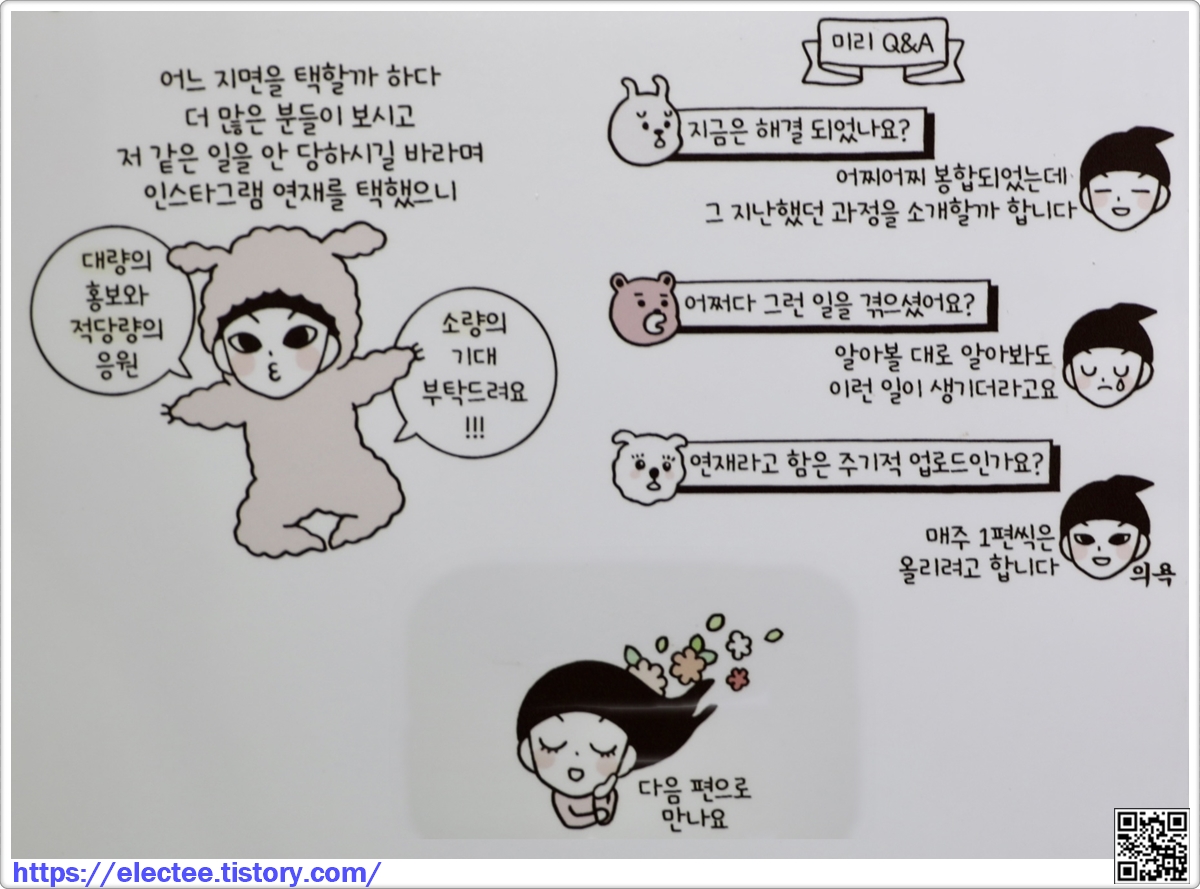 어느 지면을 택할까 하다
더 많은 분들이 보시고
저 같은 일을 안 당하시길 바라며
인스타그램 연재를 택했으니
대량의
홍보와
적당량의
응원
소량의
기대
부탁드려요
!!!
미리 Q&A
지금은 해결 되었나요?
어찌어찌 봉합되었는데
그 지난했던 과정을 소개할까 합니다
어쩌다 그런 일을 겪으셨어요?
알아볼 대로 알아봐도
이런 일이 생기더라고요
연재라고 함은 주기적 업로드인가요?
매주 1편씩은
올리려고 합니다
의욕
다음 편으로
만나요
https://electee.tistory.com/